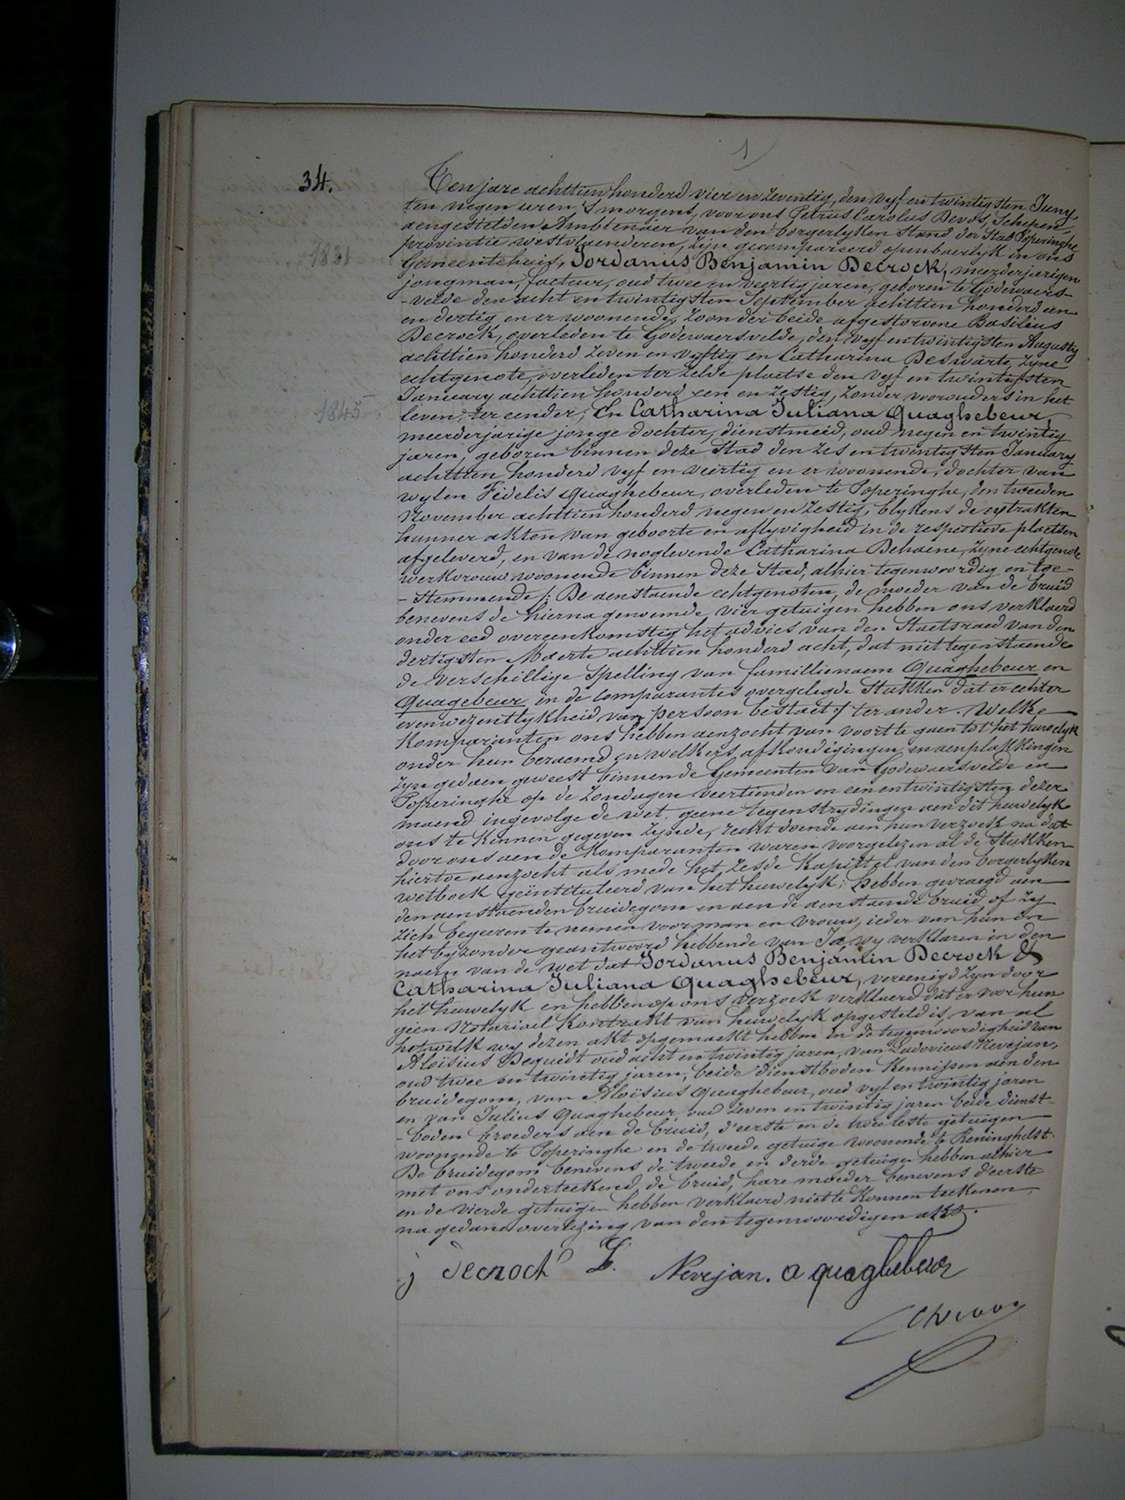 1
34.
Ten jare achttien honderd vier en zeventig, den vyf en twintigsten Juny,
ten negen uren 's morgens, voor ons Petrus Carolus Devos, Schepen
aengestelden Ambtenaer van den borgerlyken Stand der Stad Poperinghe
provintie westvlaenderen, zyn gecompareerd openbaerlyk in ons
1831
Gemeentehuis, Jordanus Benjamin Decrock, meerderjarigen
jongman, facteur, oud twee en veertig jaren, geboren te Godewaers-
-velde den acht en twintigsten September achttien honderd een
en dertig en er woonende, zoon der beide afgestorvene Basilius
Decrock, overleden te Godewaersvelde, den vyf en twintigsten Augusty
achttien honderd zeven en vyftig en Catharina Deswarte, zyne
echtgenote, overleden ter zelve plaetse den vyf en twintigsten
January achttien honderd een en zestig, zonder voorouders in het
1845
leven, ter eender; En Catharina Juliana Quaghebeur,
meerderjarige jonge dochter, dienstmeid, oud negen en twintig
jaren, geboren binnen deze Stad den zes en twintigsten January
achttien honderd vyf en veertig en er woonende, dochter van
wylen Fidelis Quaghebeur, overleden te Poperinghe, den tweeden
November achttien honderd negen en zestig, blykens de extrakten
hunner akten van geboorte en aflyvigheid in de respective plaetsen
afgeleverd, en van de noglevende Catharina Dehaene, zyne echtgenote
werkvrouw woonende binnen deze Stad, alhier tegenwoordig en toe-
-stemmende; De aenstaende echtgenoten, de moeder van de bruid
benevens de hierna genoemde vier getuigen hebben ons verklaerd
onder eed overeenkomstig het advies van den Staetsraed van den
dertigsten Maerte achttien honderd acht, dat niettegenstaende
de verschillige Spelling van famillienaem Quaghebeur en
Quagebeur in de comparantes overgelegde Stukken dat er echter
evenwezentlykheid van persoon bestaet; ter ander. Welke
komparanten ons hebben aenzocht van voort te gaen tot het huwelyk
onder hun beraemd en welkers afkondigingen en aenplakkingen
zyn gedaen geweest binnen de Gemeenten van Godewaersvelde en
Poperinghe op de zondagen veertienden en eenentwintigsten dezer
maend ingevolge de wet. geene tegenstrydingen aen dit huwelyk
ons te kennen gegeven zynde, recht doende aen hun verzoek na dat
door ons aen de komparanten waren voorgelezen al de Stukken
hiertoe aenzocht als mede het zesde Kapittel van den borgerlyken
wetboek geïntituleerd van het huwelyk; hebben gevraegd aen
den aenstaenden bruidegom en aen de aenstaende bruid of zy
zich begeeren te nemen voor man en vrouw, ieder van hun in
het byzonder geantwoord hebbende van Ja, wy verklaren in den
naem van de wet dat Jordanus Benjamin Decrock &
Catharina Juliana Quaghebeur, vereenigd zyn door
het huwelyk en hebben op ons verzoek verklaerd dat er voor hun
geen Notariael kontrakt van huwelyk opgesteld is, van al
hetwelk wy dezen akt opgemaekt hebben in de tegenwoordigheid van
Aloïsius Dequidt oud acht en twintig jaren, van Ludovicus Nevejan,
oud twee en twintig jaren, beide dienstboden kennissen aen den
bruidegom, van Aloïsius Quaghebeur, oud vyf en twintig jaren
en van Julius Quaghebeur, oud zeven en twintig jaren beide dienst-
-boden broeders aen de bruid, d'eerste en de twee leste getuigen
woonende te Poperinghe en de tweede getuige woonende te Reninghelst.
De bruidegom benevens de tweede en derde getuigen hebben alhier
met ons onderteekend, de bruid, hare moeder benevens d'eerste
en de vierde getuigen hebben verklaerd niet te konnen teekenen,
na gedane overlezing van den tegenwoordigen akt.
j decrock L. Nevejan. a quaghebeur